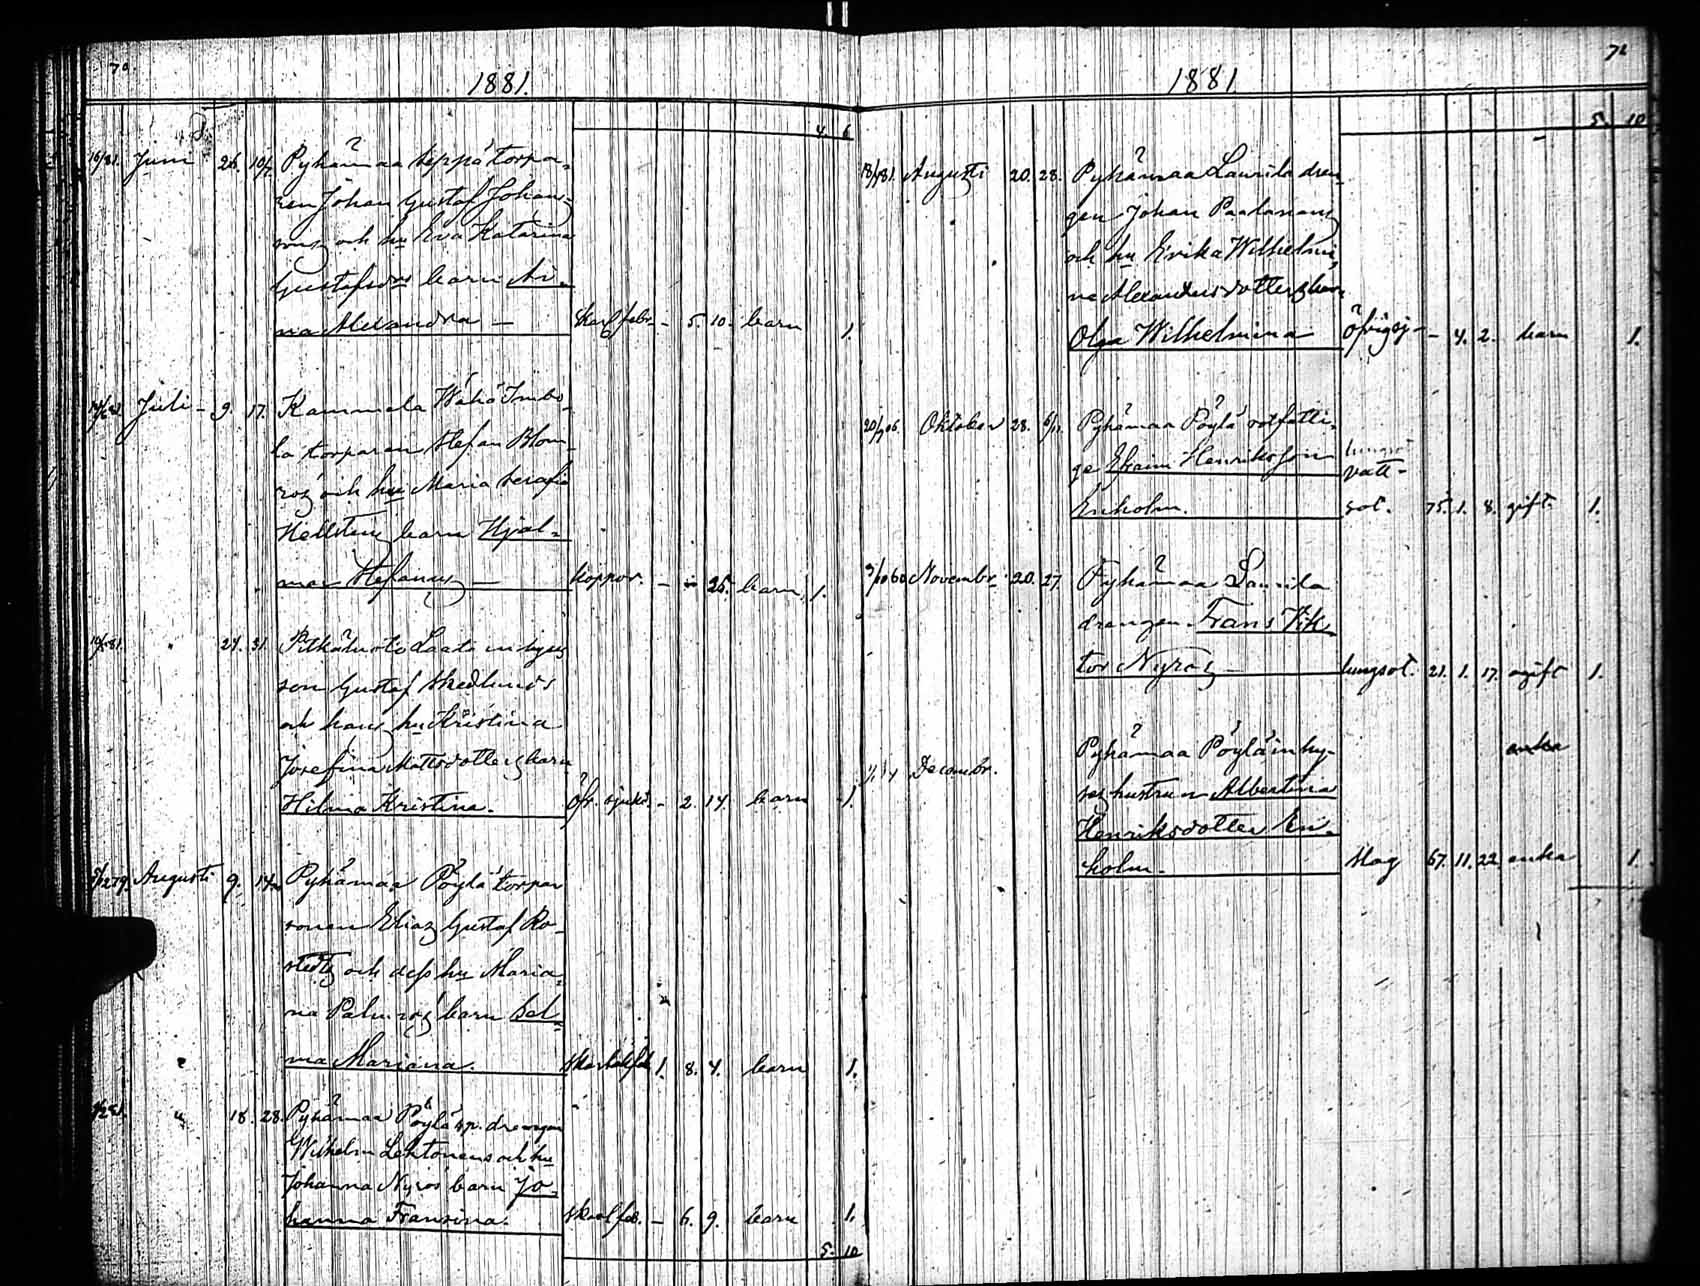 70.
1881.
4. 6
16/81. Juni 26. 10/7. Pyhämaa Seppä torpa-
ren Johan Gustaf Johans-
sons och hu Eva Katarina
Gustafsdrs barn Ai-
na Alexandra — Skarl.febr. - 5. 10. barn 1.
Juli - 9. 17. Kammela Wähä Imbo-
la torparen Stefan Blom-
ros och hu Maria Serafia
Hellstens barn Hjal-
mar Stefanus — koppor. - - 25. barn 1.
24. 31. Pitkäluoto Laata inhyses
son Gustaf Skedlunds
och hans hu Kristina
Josefina Mattsdotters barn
Hilma Kristina. öfr. sjukd. - 2. 14. barn 1.
Augusti 9. 14. Pyhämaa Pöylä torpar
sonen Elias Gustaf Ro-
stedts och dess hu Maria-
na Palmros barn Sel-
ma Mariana. 1. 8. 4. barn 1.
" 18. 28. Pyhämaa Pöylä sp. drengen
Wilhelm Lehtonens och hu
Johanna Nyros barn Jo-
hanna Fransina. Skarl.feb. - 6. 9. barn 1.
5. 10
71
1881.
5. 10
Augusti 20. 28. Pyhämaa Laurila dren-
gen Johan Paalanens
och hu Erika Wilhelmi-
na Alexandersdotters barn
Olga Wilhelmina - 4. 2. barn 1.
20/9 06. Oktober 28. 6/11. Pyhämaa Pöylä rotfatti-
ge Efraim Henriksson
Enholm. vatt-
sot. 75. 1. 8. gift. 1.
9/10 60 Novembr. 20. 27. Pyhämaa Laurila
drengen Frans Vik-
tor Nyros — lungsot. 21. 1. 17. ogift 1.
Decembr. Pyhämaa Pöylä inhy-
ses hustrun Albertina enka
Henriksdotter En-
holm. Slag 67. 11. 22. enka 1.